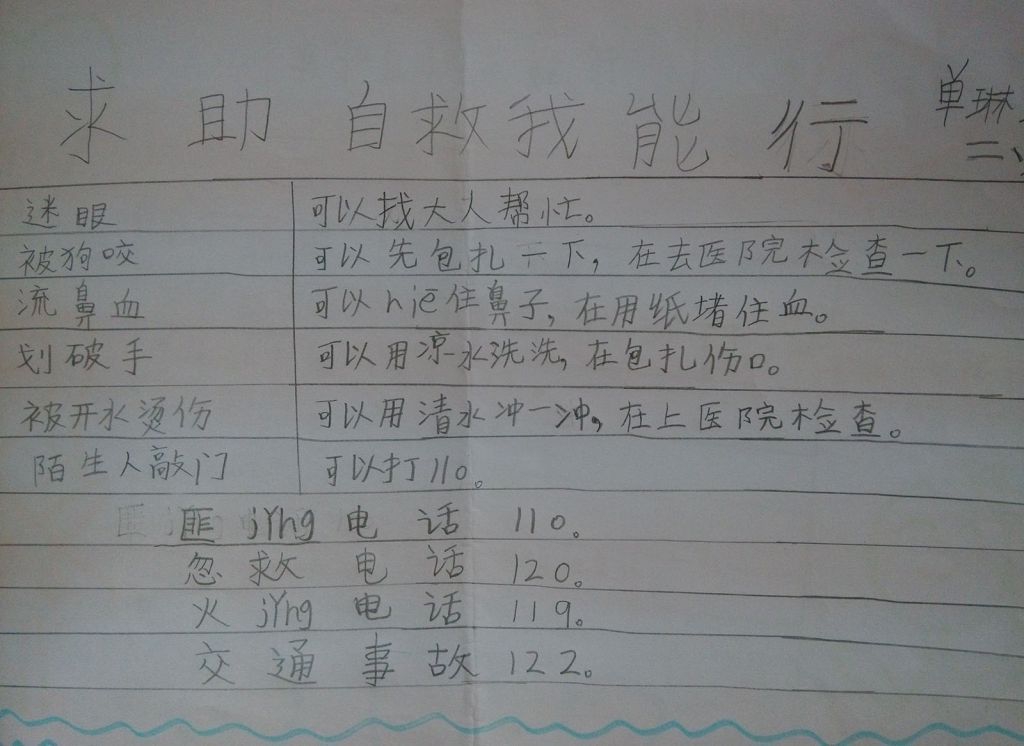 求助自救我能行
单琳
二
迷眼 可以找大人帮忙。
被狗咬 可以先包扎一下，在去医院检查一下。
流鼻血 可以niē住鼻子，在用纸堵住血。
划破手 可以用凉水洗洗，在包扎伤口。
被开水烫伤 可以用清水冲一冲，在上医院检查。
陌生人敲门 可以打110。
匪jǐng电话 110。
忽救电话 120。
火jǐng电话 119。
交通事故 122。